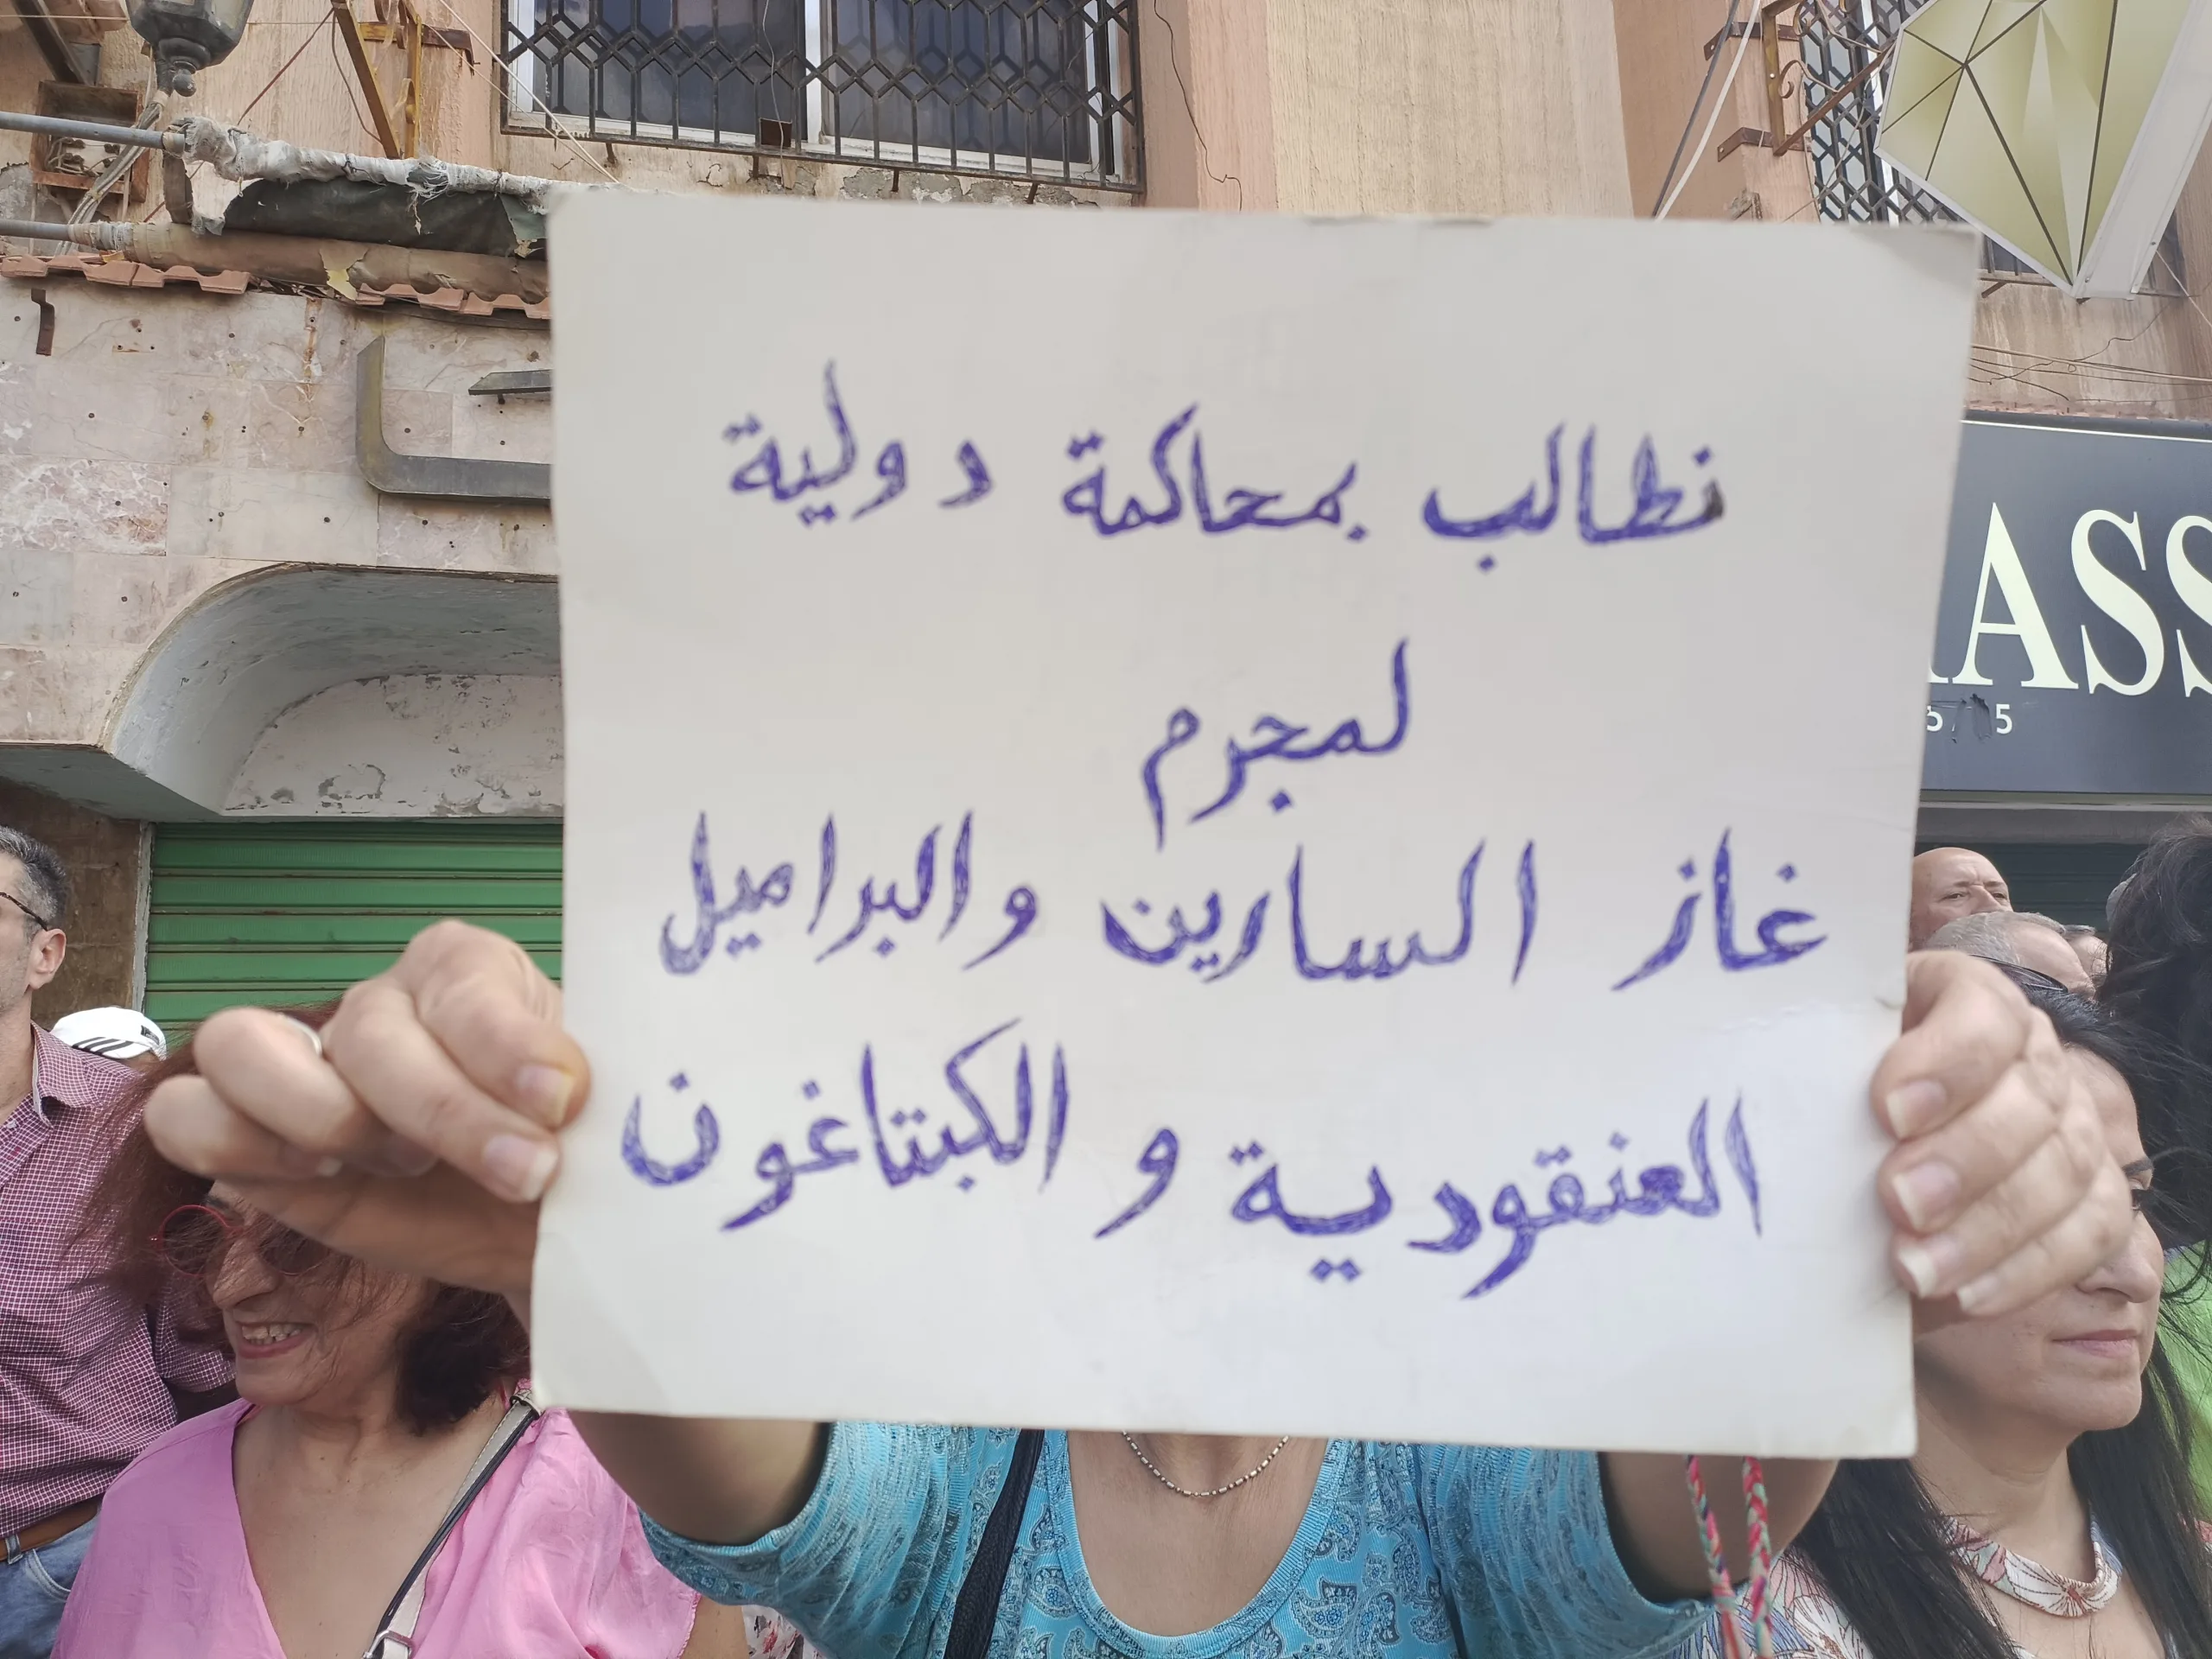 نطالب بمحاكمة دولية
لمجرم
غاز السارين والبراميل
العنقودية و الكبتاغون
ASS
5